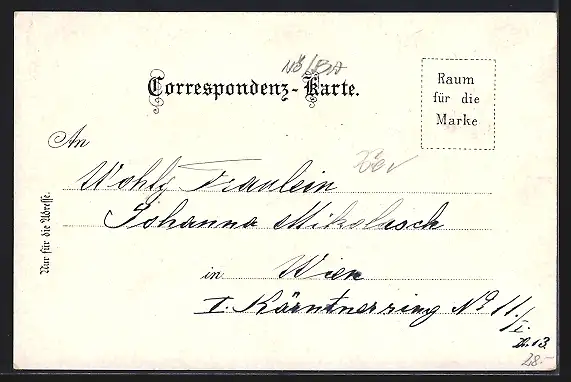 Correspondenz-Karte.
Raum
für die
Marke
An
Wohlg Fräulein
Johanna Mikolasch
in Wien
I. Kärntnerring No 11./I.
Th. 13.
Nur für die Adresse.
28.-